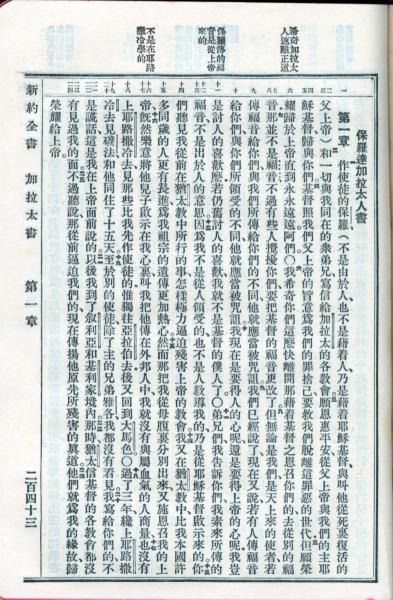 責奇加拉太
人速離正道
保羅傳的福
音是從上帝
來的
不是在耶路
撒冷學的
保羅達加拉太人書
第一章 作使徒的保羅(不是由於人也不是藉着人乃是藉着耶穌基督與叫他從死裏復活的
父上帝)和一切與我同在的衆弟兄寫信給加拉太的各教會願恩惠平安從父上帝與我們的主耶
穌基督歸與你們基督照我們父上帝的旨意爲我們的罪捨己要救我們脫離這罪惡的世代但願榮
耀歸於上帝直到永永遠遠阿們〇我希奇你們這麼快離開那藉着基督之恩召你們的去從別的福
音那並不是福音不過有些人攪擾你們要把基督的福音更改了但無論是我們是天上來的使者若
傳福音給你們與我們所傳給你們的不同他就應當被咒詛我們已經說了現在又說若有人傳福音
給你們與你們所領受的不同他就應當被咒詛我現在是要得人的心呢還是要得上帝的心呢我豈
是討人的喜歡麼若仍舊討人的喜歡我就不是基督的僕人了〇弟兄們我告訴你們我素來所傳的
福音不是出於人的意思因爲我不是從人領受的也不是人教導我的乃是從耶穌基督啟示來的你
們聽見我從前在猶太教中所行的事怎樣極力逼迫殘害上帝的教會我又在猶太教中比我本國許
多同歲的人更有長進爲我祖宗的遺傳更加熱心然而那把我從母腹裏分別出來又施恩召我的上
帝旣然樂意將他兒子啟示在我心裏叫我把他傳在外邦人中我就沒有與屬血氣的人商量也沒有
上耶路撒冷去見那些比我先作使徒的惟獨往亞拉伯去後又回到大馬色〇過了三年纔上耶路撒
冷去見磯法和他同住了十五天至於別的使徒除了主的兄弟雅各我都沒有看見我寫給你們的不
是謊話這是我在上帝面前說的以後我到了叙利亞和基利家境內那時猶太信基督的各教會都沒
有見過我的面不過聽說那從前逼迫我們的現在傳揚他原先所殘害的眞道他們就爲我的緣故歸
榮耀給上帝
新約全書 加拉太書 第一章 二百四十三